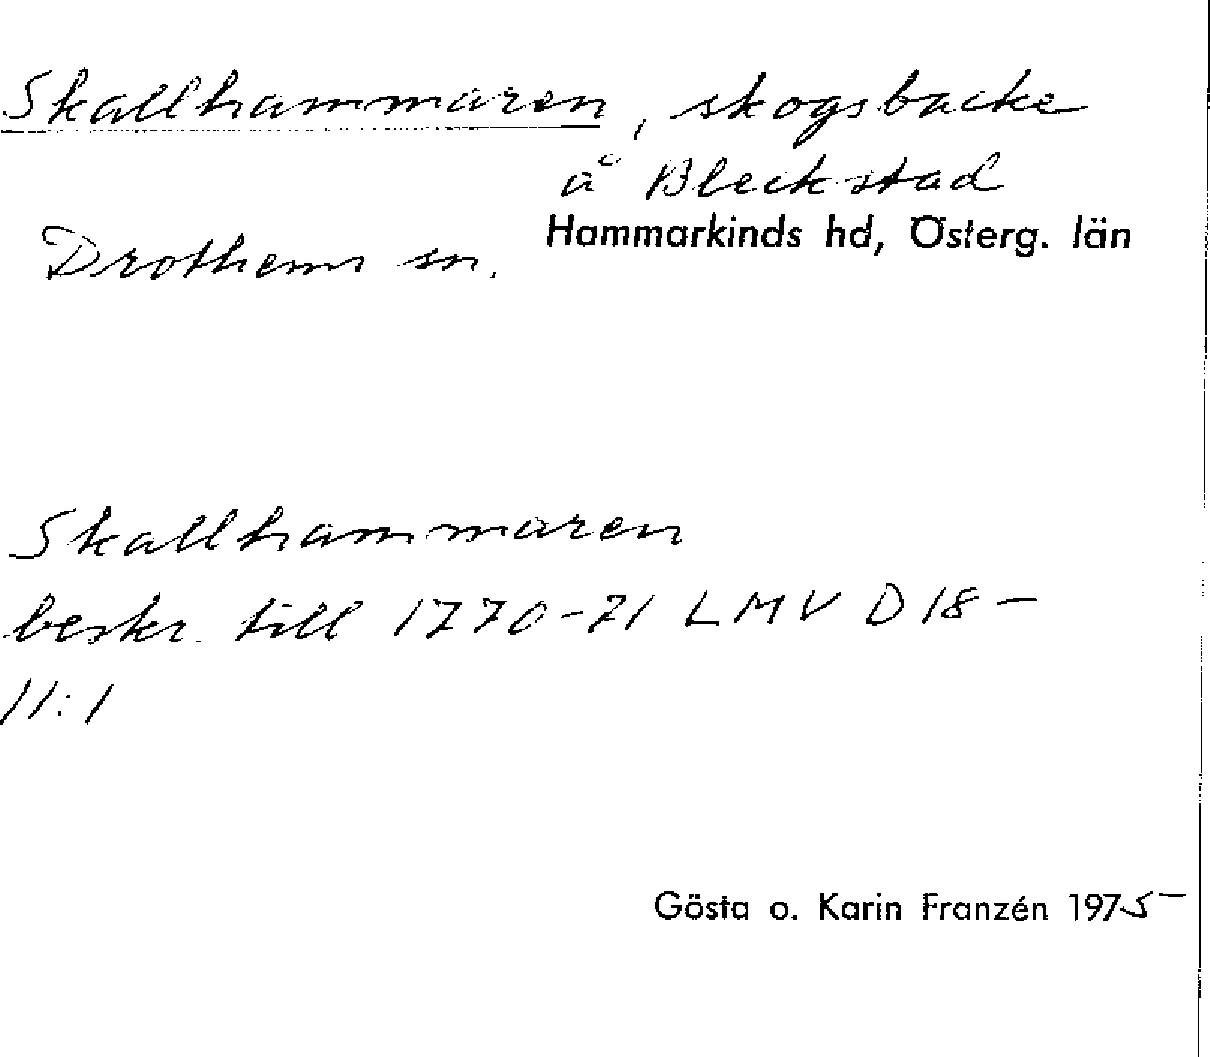 Skallhammaren, skogsbacke
å Bleckstad
Hammarkinds hd, Österg. län
Drothems sn.
Skallhammaren
beskr. till 1770-71 LMV D18-
11:1
Gösta o. Karin Franzén 1975